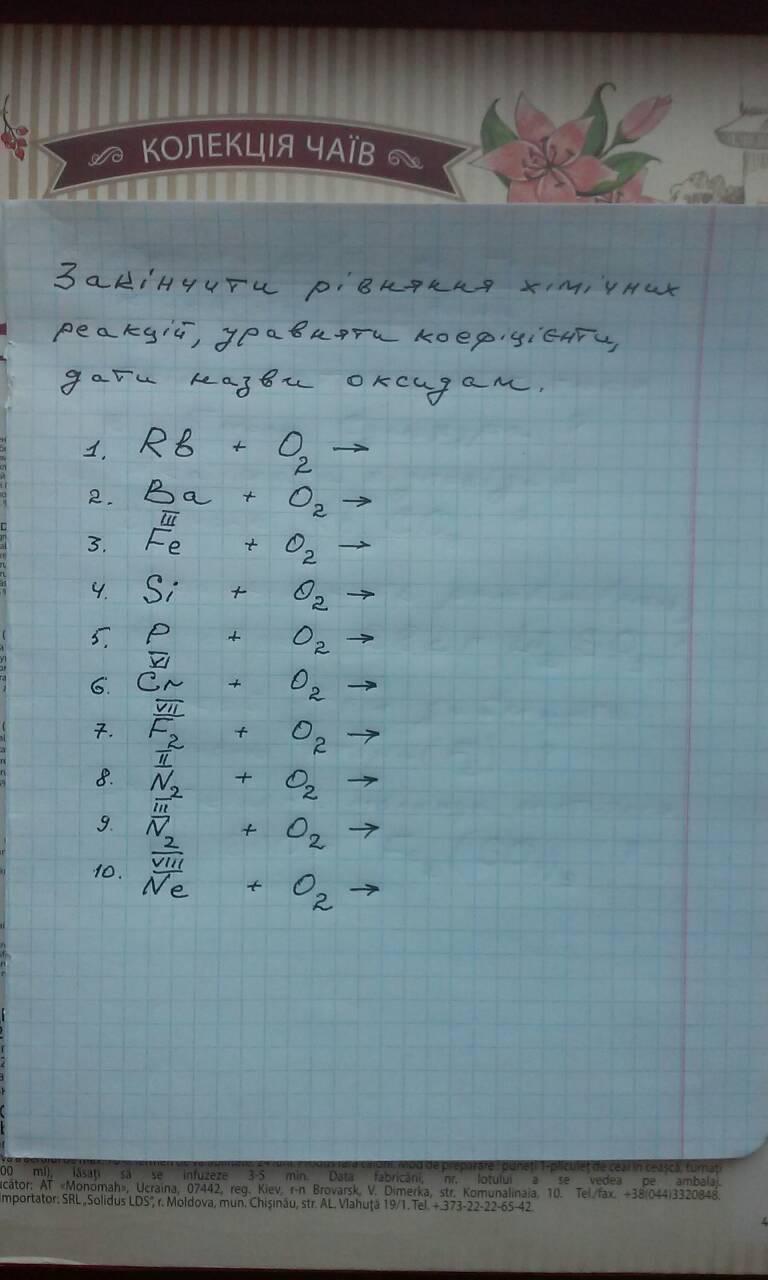 КОЛЕКЦІЯ ЧАЇВ
Закінчити рівняння хімічних
реакцій, уравняти коефіцієнти,
дати назви оксидам.
1. Rb + O2 →
2. Ba + O2 →
III
3. Fe + O2 →
4. Si + O2 →
5. P + O2 →
VI
6. Cr + O2 →
VII
7. F2 + O2 →
II
8. N2 + O2 →
III
9. N2 + O2 →
VIII
10. Ne + O2 →
00 ml), lăsați să se infuzeze 3-5 min. Data fabricării, nr. lotului a se vedea pe ambalaj.
ucător: AT «Monomah», Ucraina, 07442, reg. Kiev, r-n Brovarsk, V. Dimerka, str. Komunalinaia, 10. Tel./fax. +38(044)3320848.
Importator: SRL „Solidus LDS", r. Moldova, mun. Chișinău, str. AL. Vlahuță 19/1. Tel. +.373-22-22-65-42.